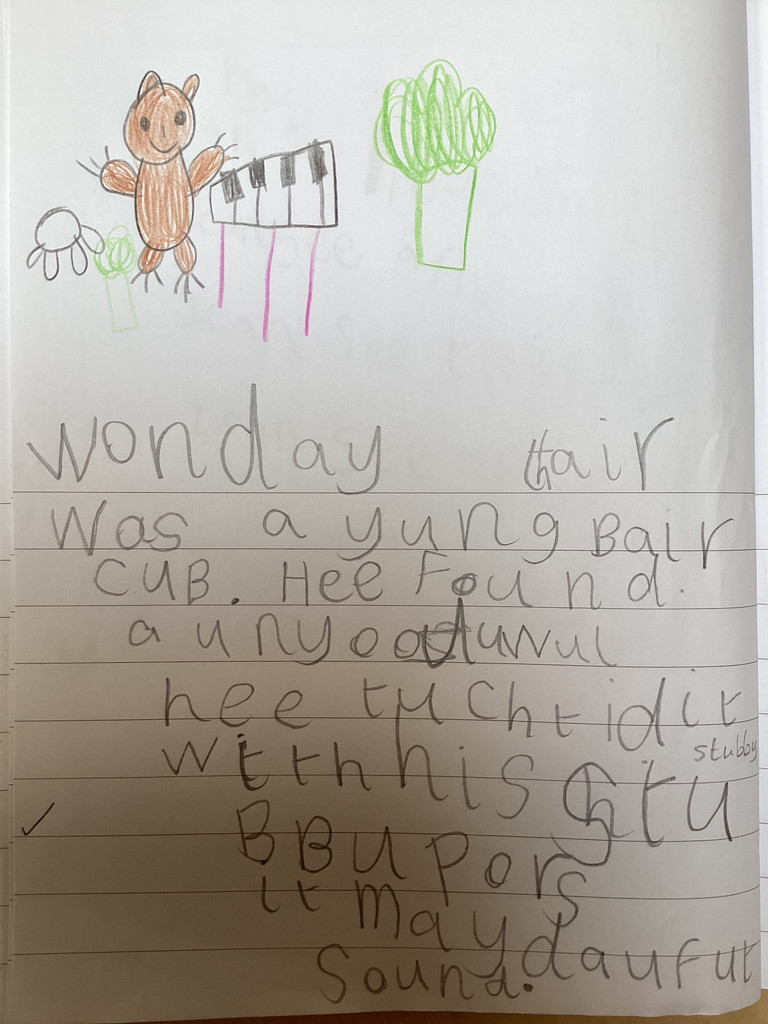 wonday thair
was a yung Bair
CUB. Hee Found.
a unyooduwul
hee tuchtid it
stubby
with his Stu
BBU pors
it may daufut
Sound.